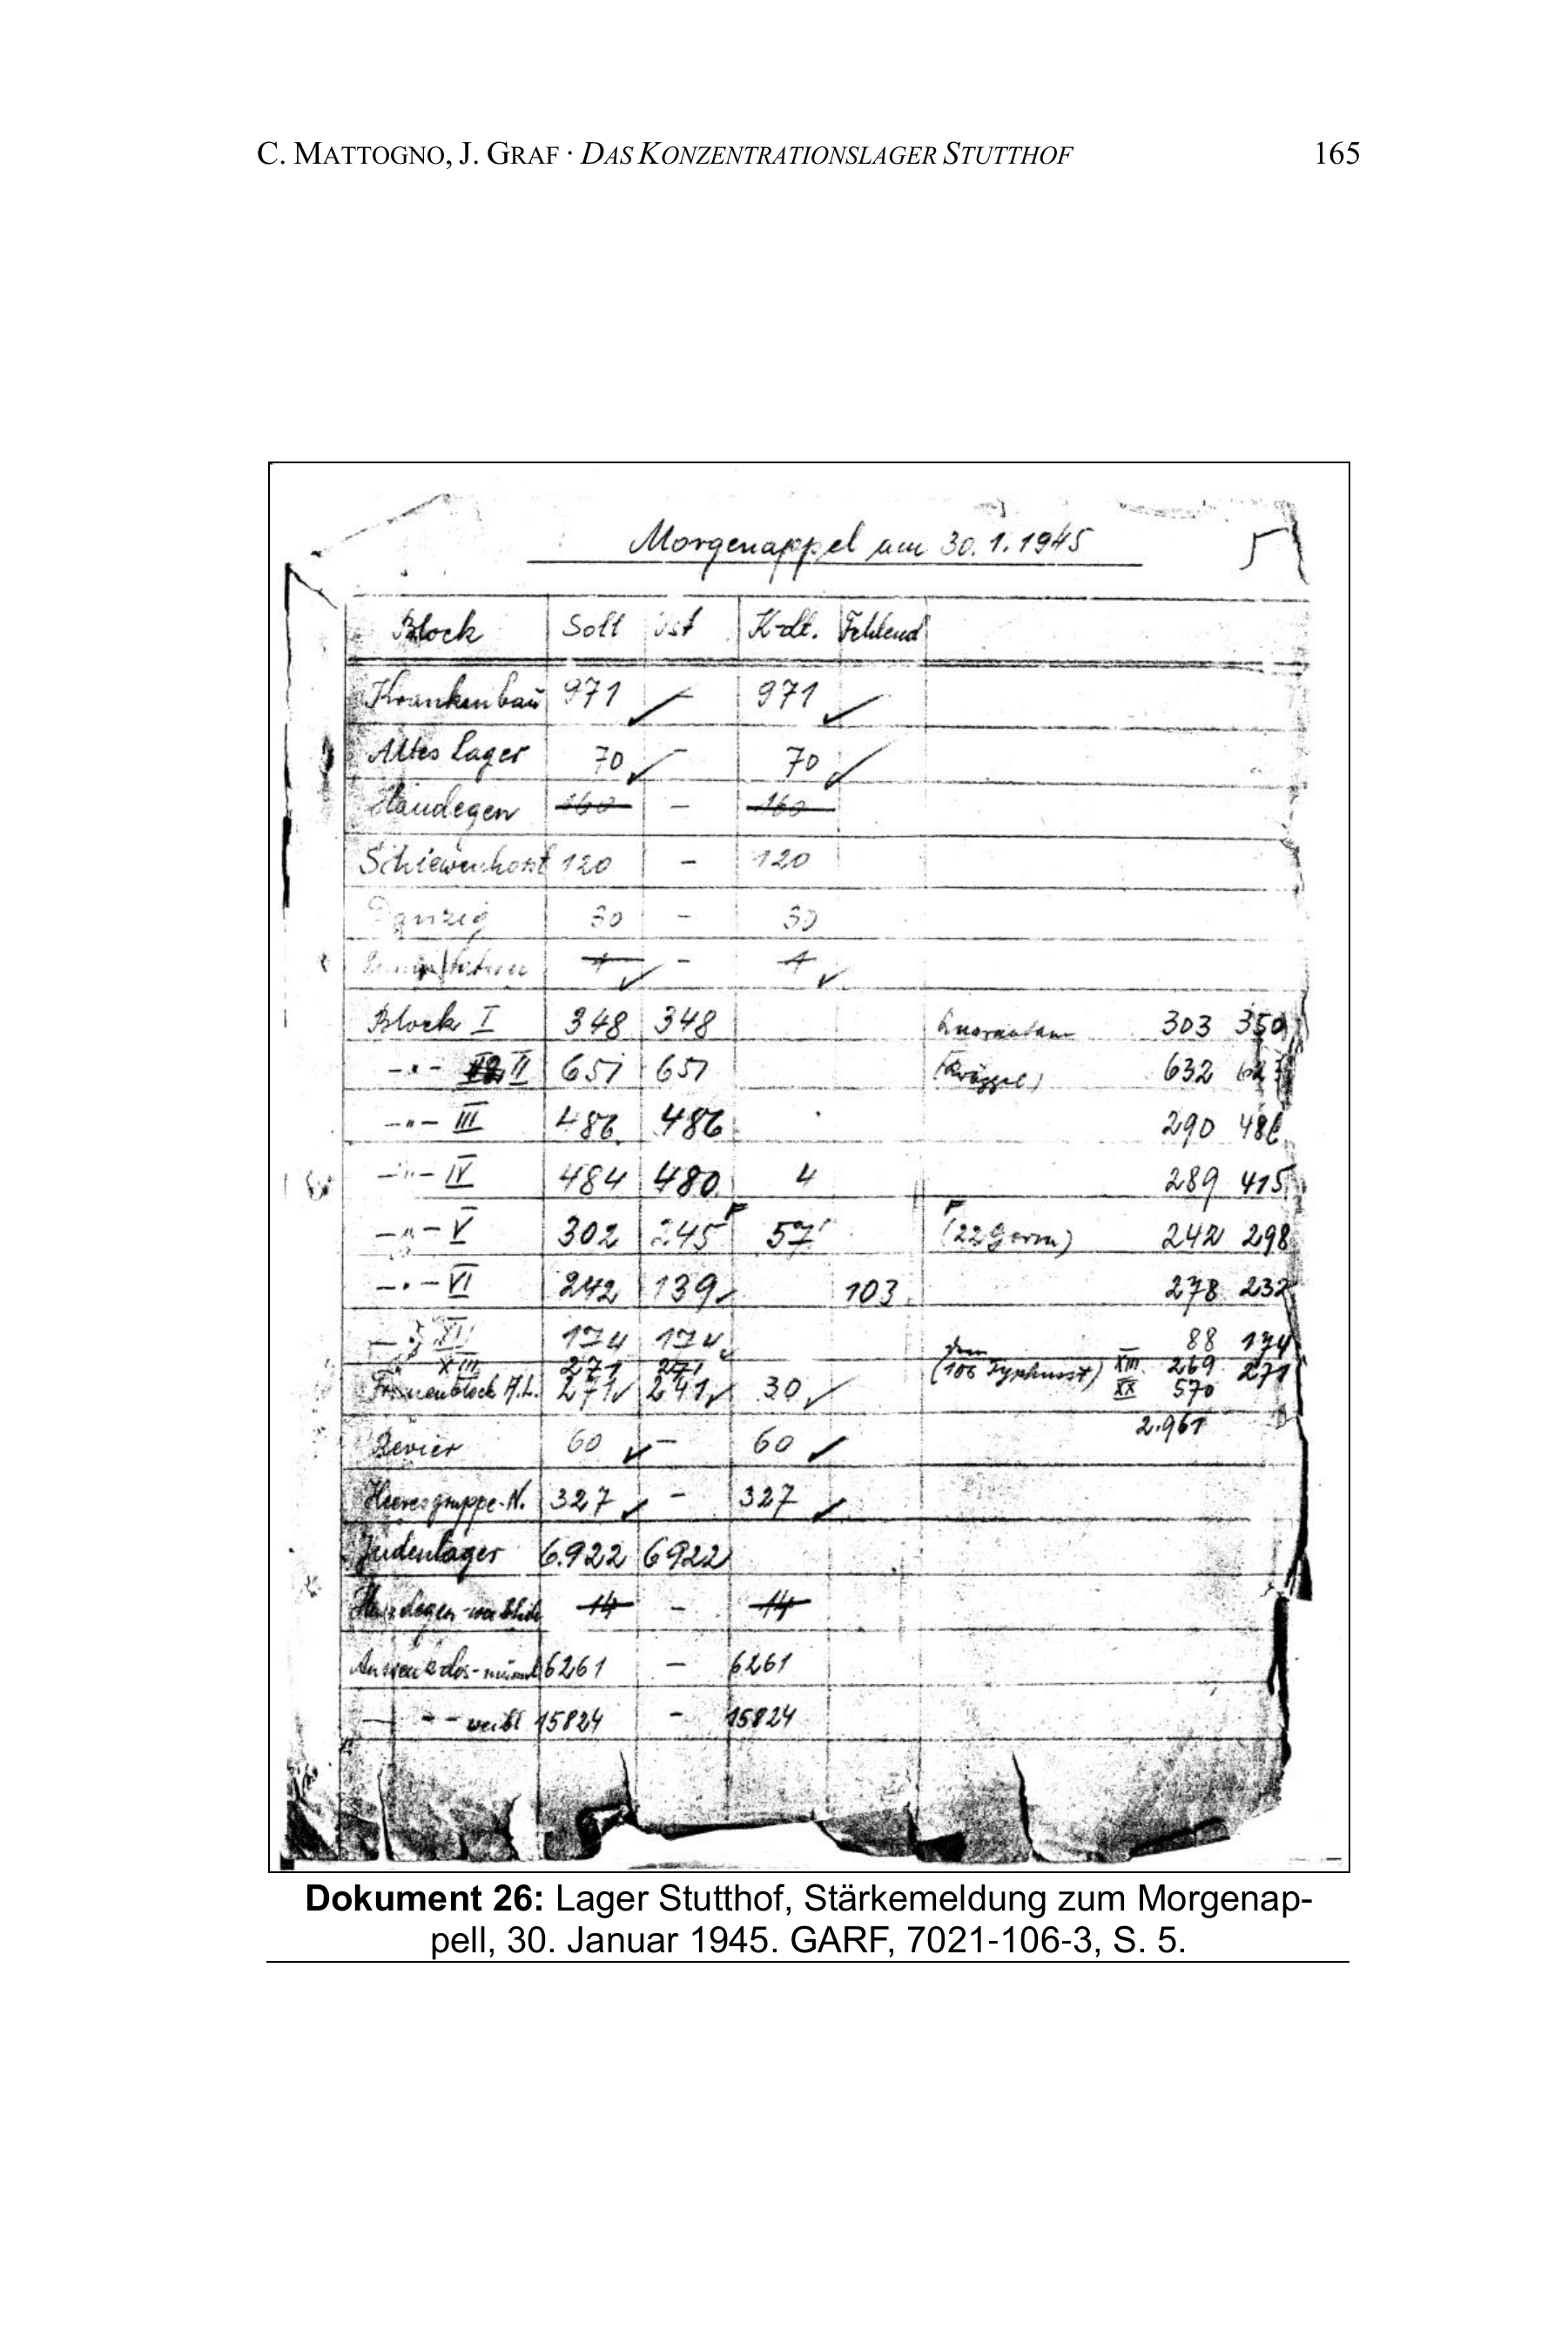 C. MATTOGNO, J. GRAF · DAS KONZENTRATIONSLAGER STUTTHOF 165
Morgenappel am 30.1.1945 5
Block Soll ist K-dt. Fehlend
Krankenbau 971 – 971
Altes Lager 70 – 70
Haudegen 160 – 160
Schiewenhorst 120 – 120
Danzig 30 – 30
1 – 1
Block I 348 348 303 350
-"- II 651 651 632
-"- III 486 486 290 486
-"- IV 484 480 4 289 415
-"- V 302 245 57 (22 Germ) 242 298
-"- VI 242 139 103 278 232
XII 174 174 88 174
XIII 271 271 (106 Typhusst) XIII 269 271
Frauenblock A.L. 271 241 30 XX 570
2.961
Revier 60 – 60
Heeresgruppe-N. 327 – 327
Judenlager 6.922 6922
Haudegen-weiblich 14 – 14
6261 – 6261
-"- weibl 15824 – 15824
Dokument 26: Lager Stutthof, Stärkemeldung zum Morgenap-
pell, 30. Januar 1945. GARF, 7021-106-3, S. 5.